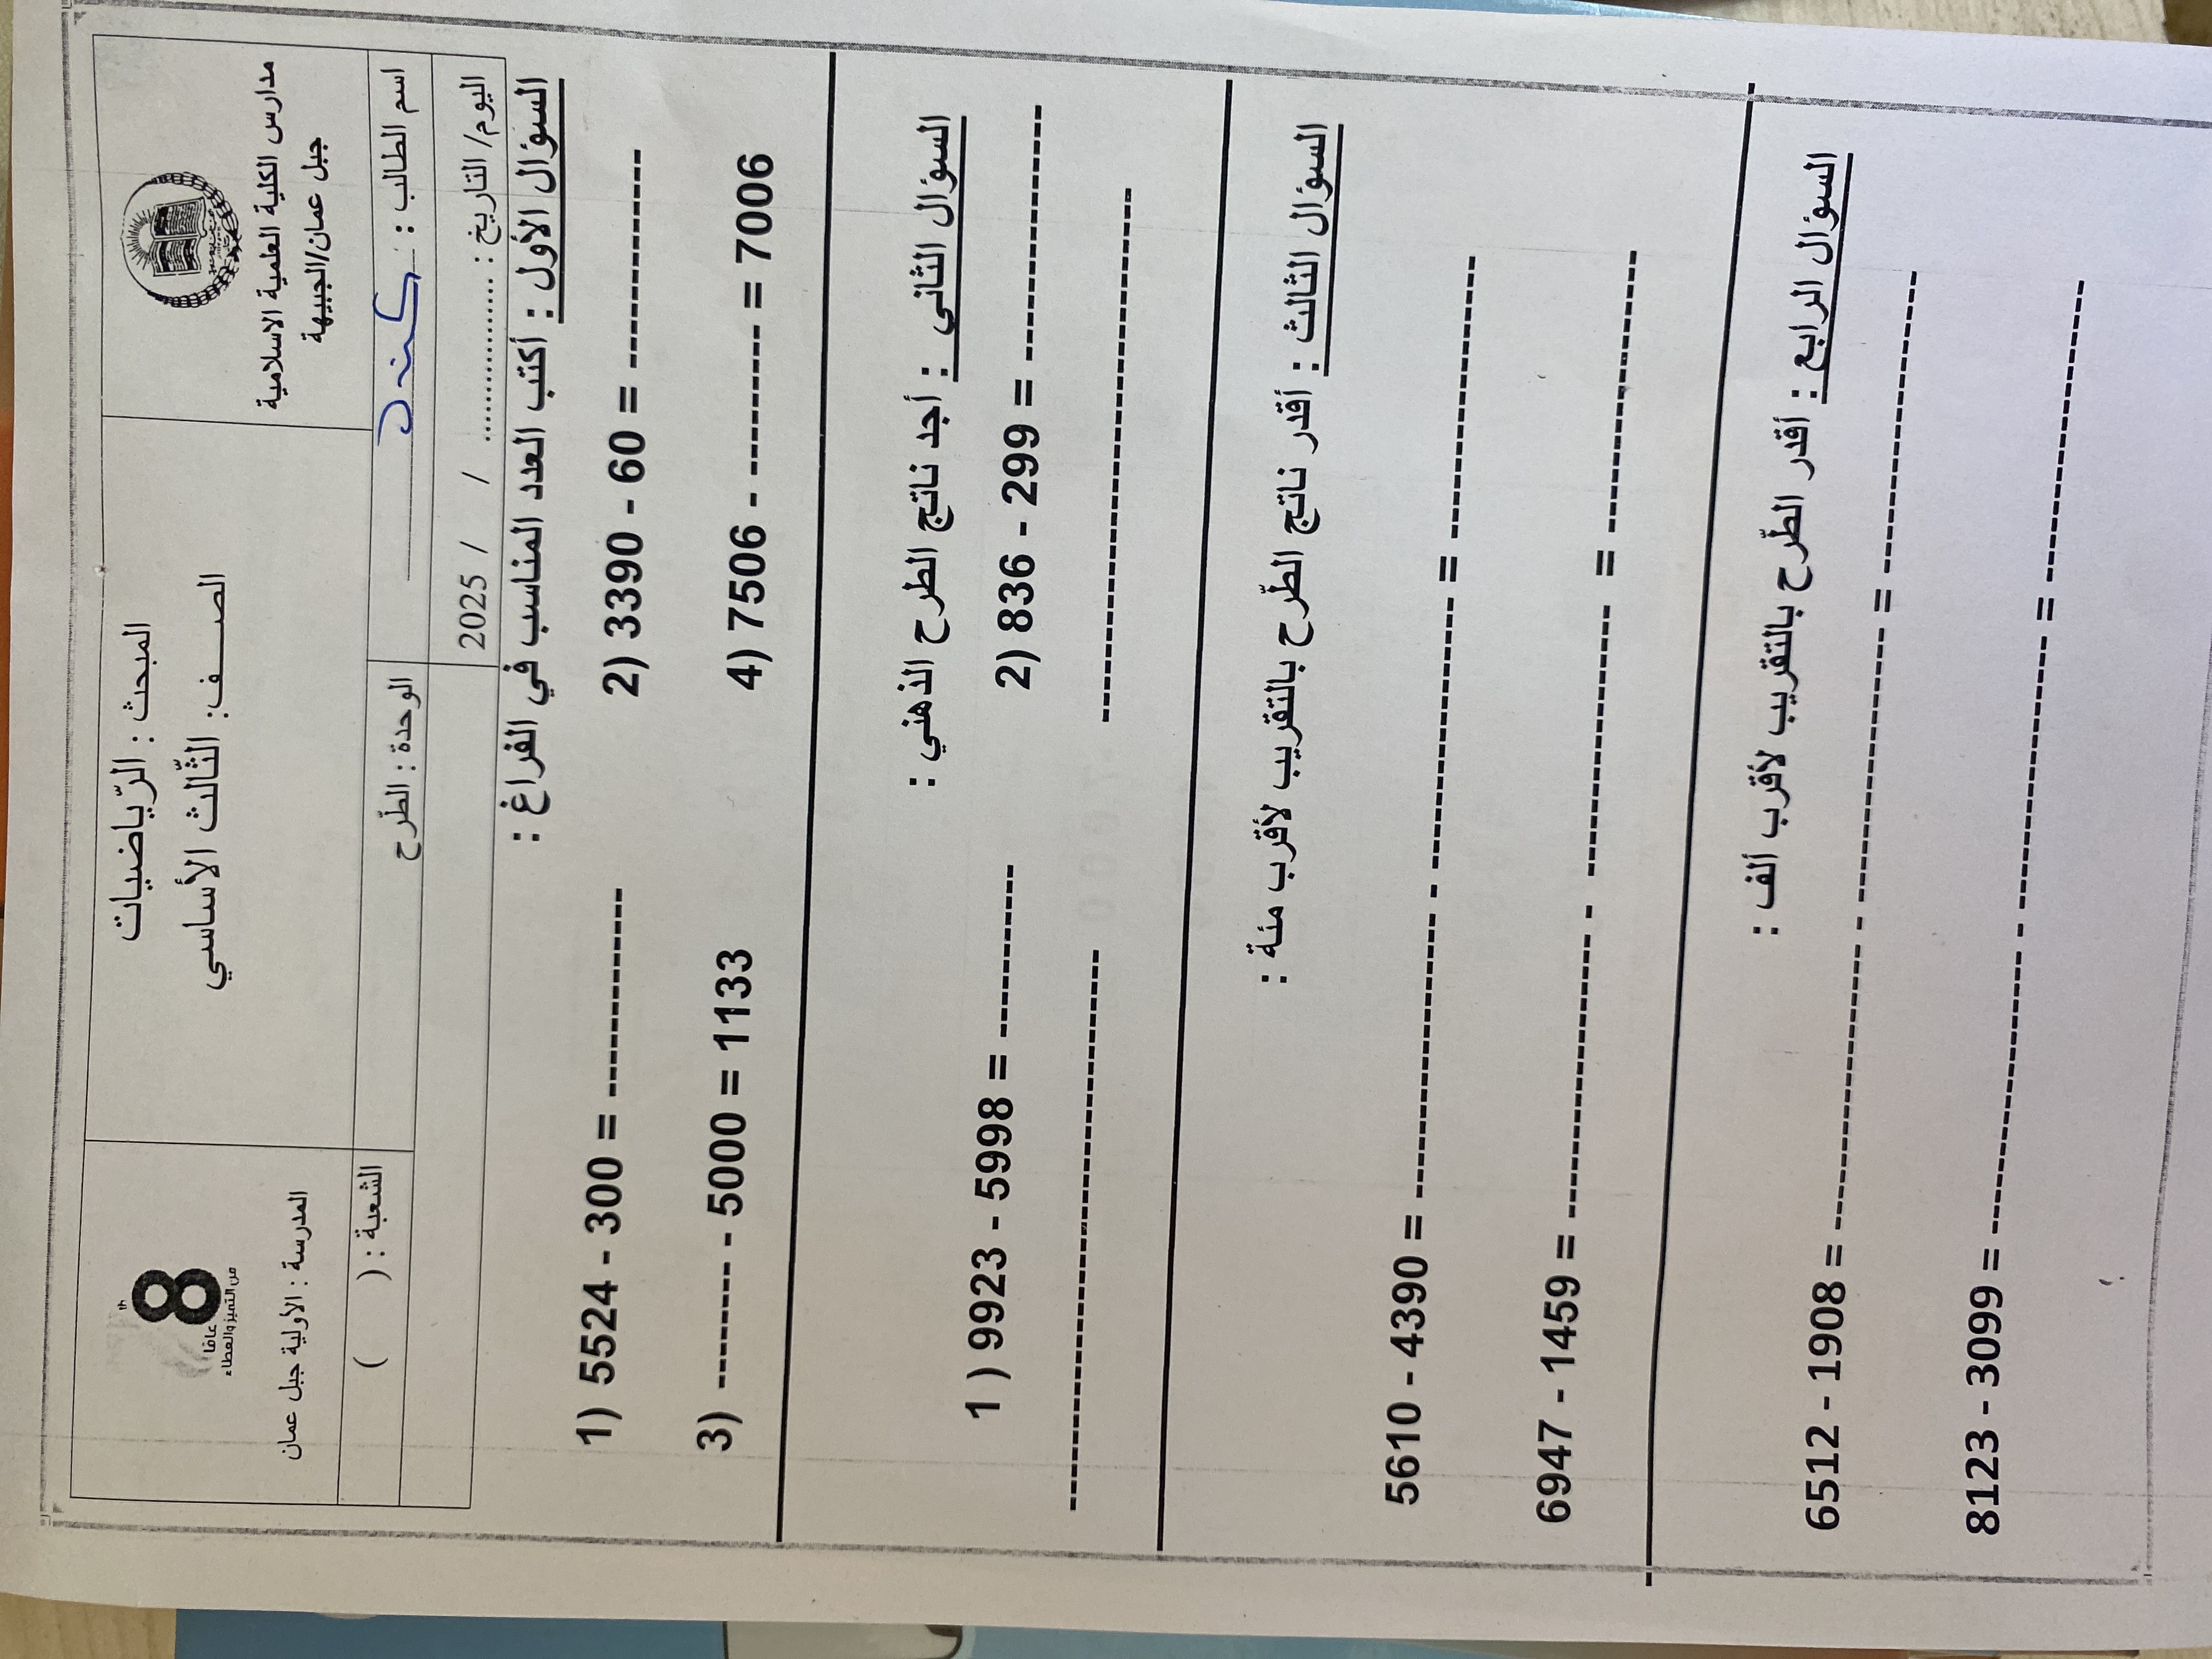 مدارس الكلية العلمية الاسلامية
جبل عمان/الجبيهة
المبحث : الرّياضيات
الصــــف: الثّالث الأساسي
8 th
عامًا
من التميز والعطاء
المدرسة : الأولية جبل عمان
اسم الطالب : كندة
الوحدة : الطّرح
الشعبة : ( )
اليوم/ التاريخ : ................. / / 2025
السؤال الأول : أكتب العدد المناسب في الفراغ :
1) 5524 - 300 = -------------- 2) 3390 - 60 = --------------
3) -------- - 5000 = 1133 4) 7506 - ---------- = 7006
السؤال الثاني : أجد ناتج الطرح الذهني :
1 ) 9923 - 5998 = ------------ 2) 836 - 299 = -----------------
------------------------------------- -----------------------------------------
السؤال الثالث : أقدر ناتج الطّرح بالتقريب لأقرب مئة :
5610 - 4390 = ------------------- - ------------------ = -------------------
6947 - 1459 = ------------------- - ------------------ = -------------------
السؤال الرابع : أقدر الطّرح بالتقريب لأقرب ألف :
6512 - 1908 = ------------------- - ------------------- = --------------------
8123 - 3099 = ------------------- - ------------------- = --------------------